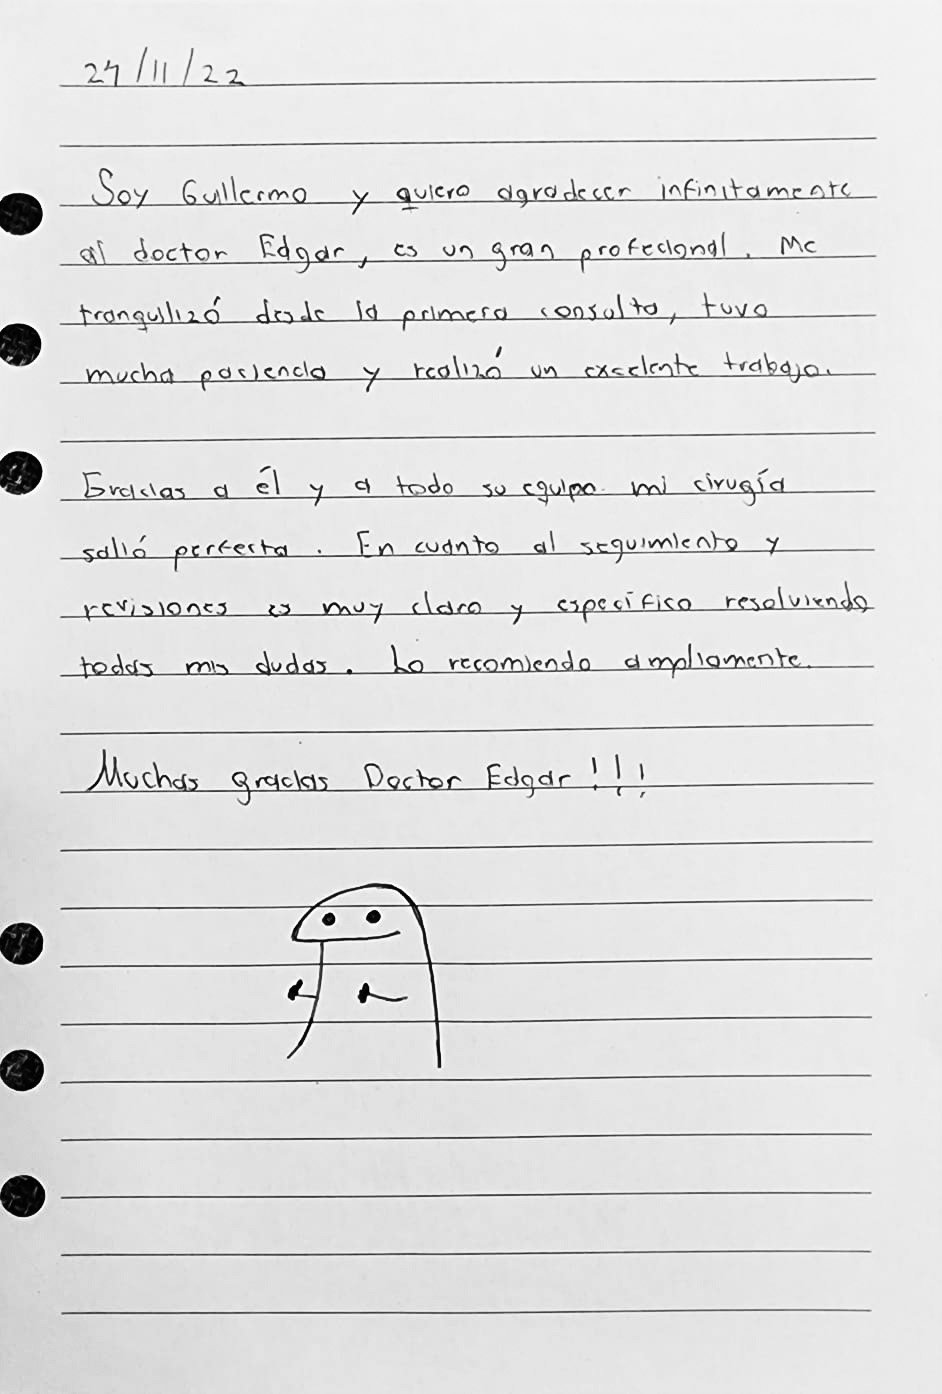 24/11/22
Soy Guillermo y quiero agradecer infinitamente
al doctor Edgar, es un gran profecional. Me
tranquilizó desde la primera consulta, tuvo
mucha paciencia y realizó un excelente trabajo.
Gracias a él y a todo su equipo mi cirugía
salió perfecta. En cuanto al seguimiento y
revisiones es muy claro y específico resolviendo
todas mis dudas. Lo recomiendo ampliamente.
Muchas gracias Doctor Edgar!!!